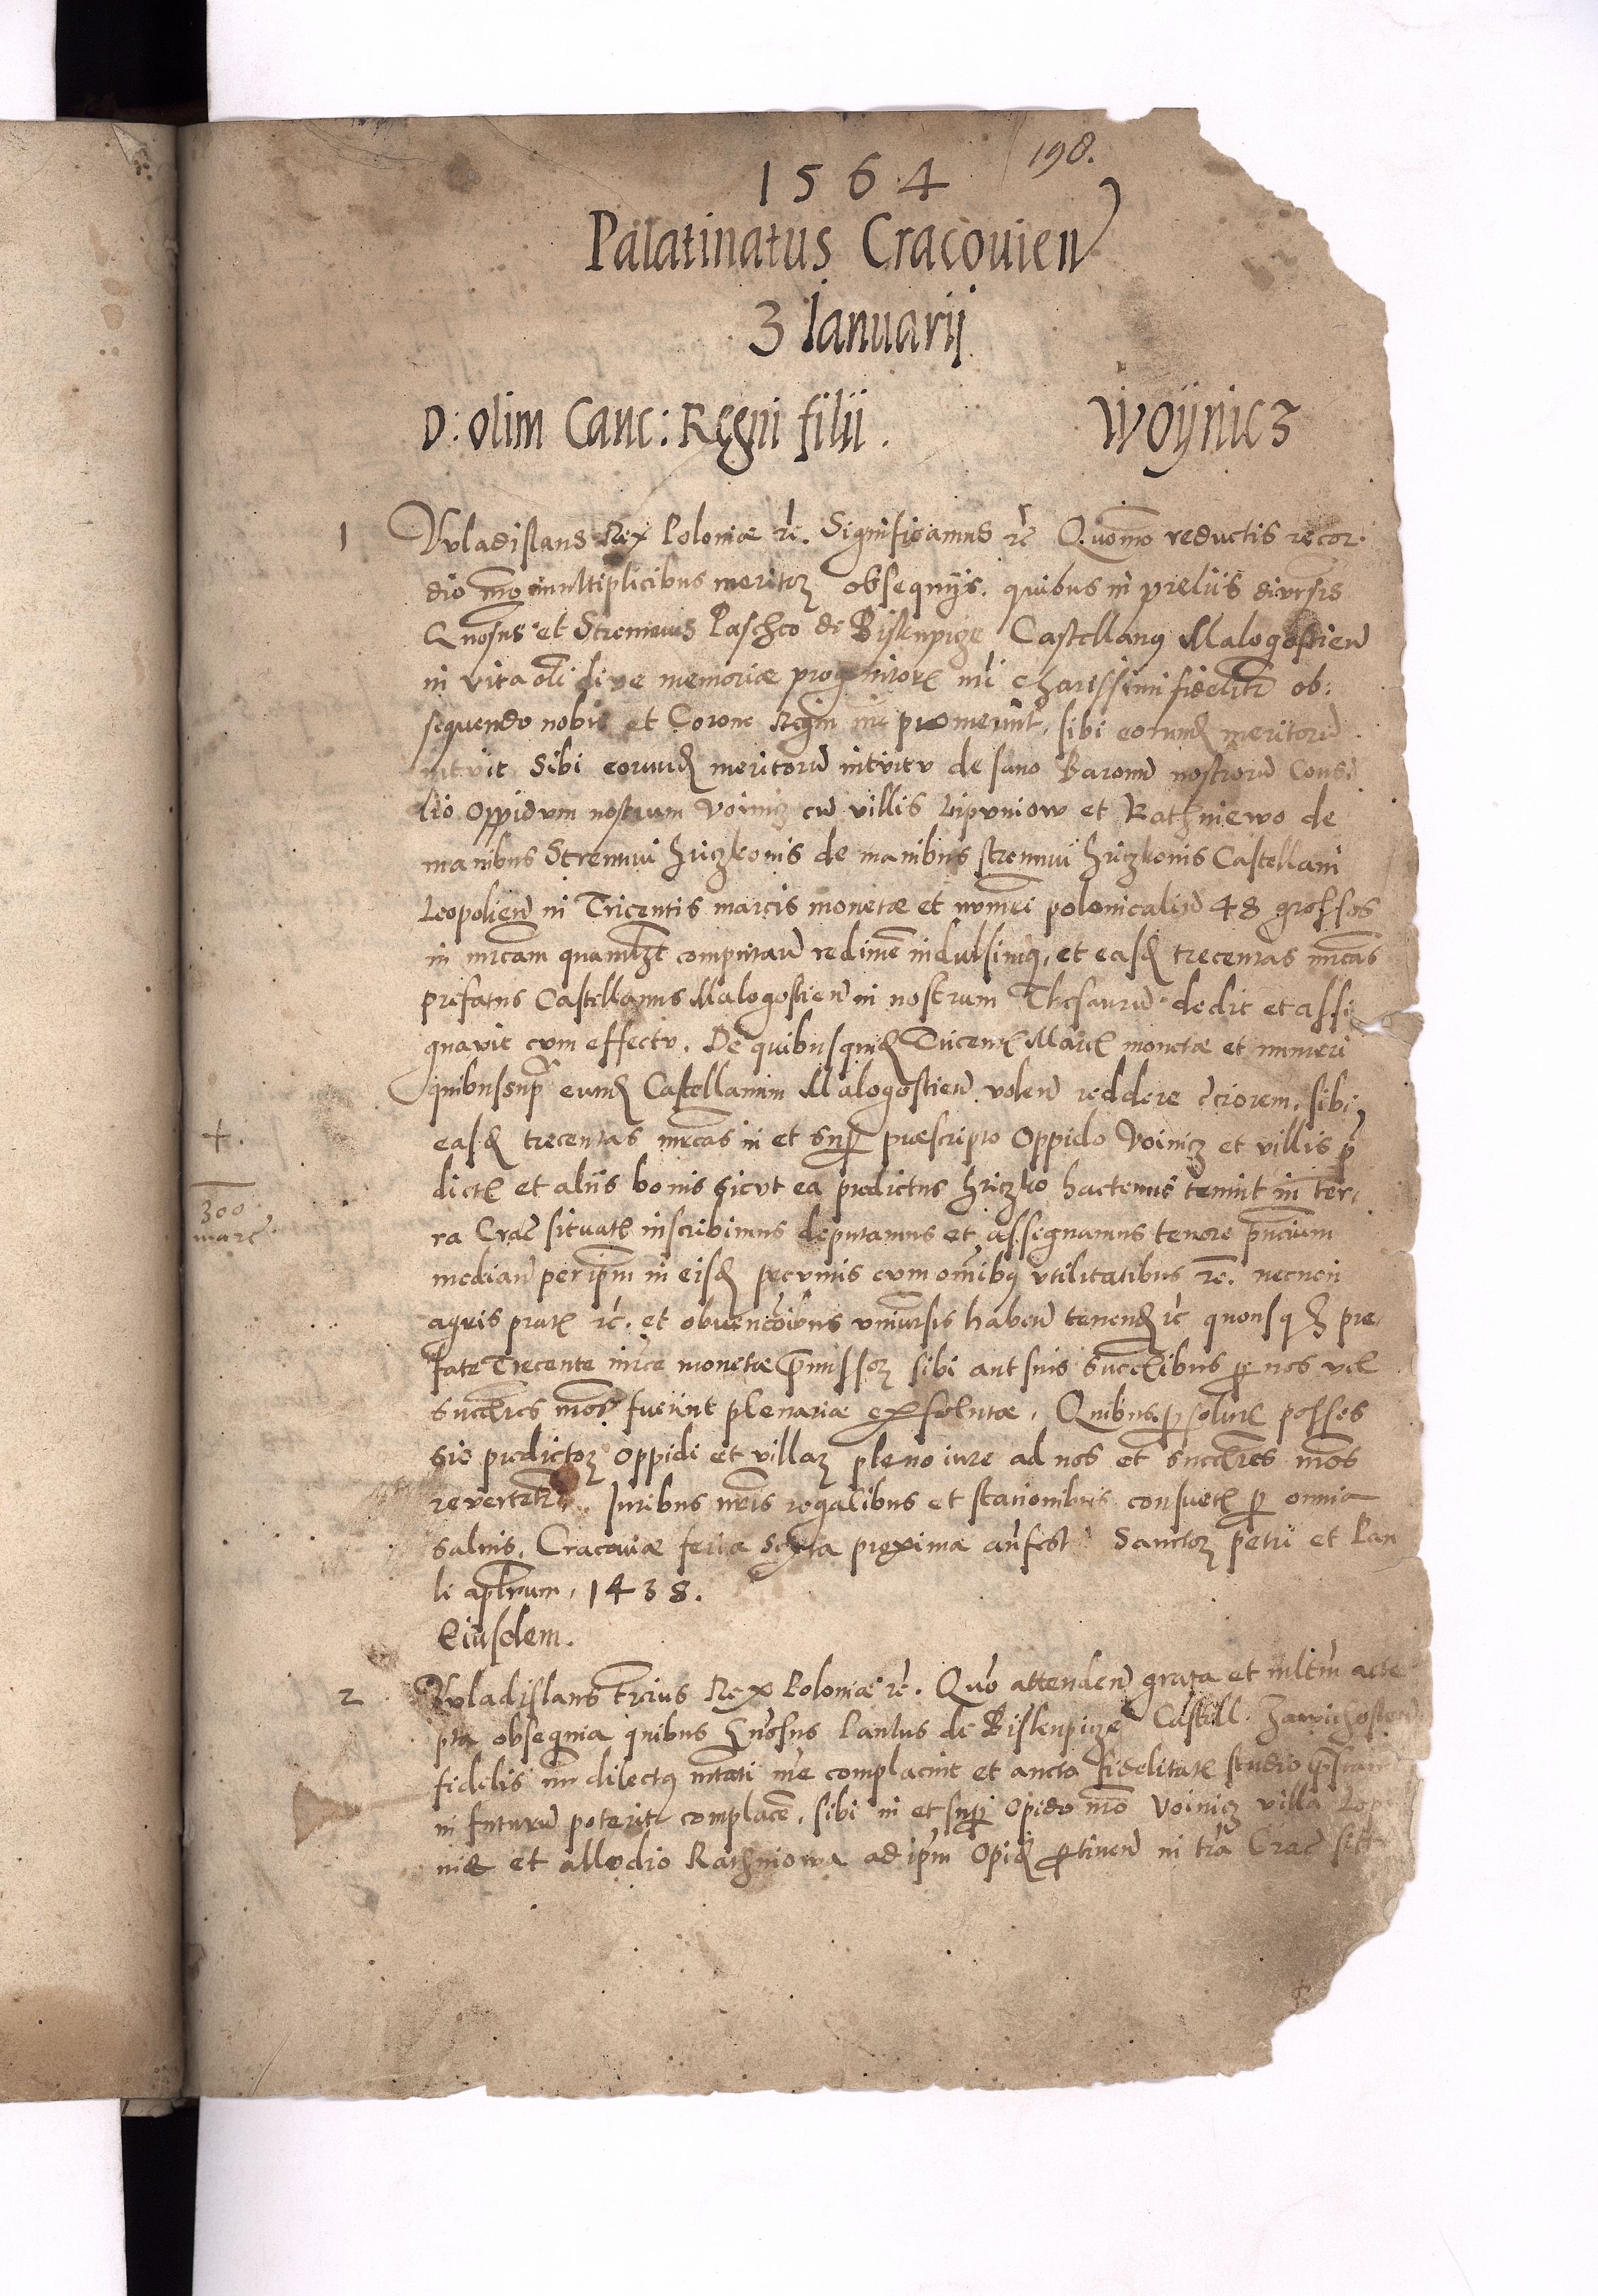 198.
1564
Palatinatus Cracouien
3 Ianuarij
D: olim Canc: Regni filii. Woÿnicz
1 Vvladislaus Rex Poloniæ rc. Significamus rc Quomo reductis recor-
dio nro multiplicibus meritor obsequijs. quibus in prelijs diuersis
Gnosus et Strenuus Paschco de Biskupize Castellanus Malogostien
in vita oli diue memoriæ progenitoris nri charissimi fideliter ob-
sequendo nobis et Corone Regni nre promeruit, sibi eorund meritoru
intuit Sibi eorund meritoru intuitu de sano Baronu nostroru Consi
lio Oppidum nostrum Voinicz cu villis Lipuniow et Rathniewo de
manibus Strennui Hriczkonis de manibus strennui Hriczkonis Castellani
Leopolien in Tricentis marcis monetæ et numeri polonicaliu 48 grosses
in mrcam quamlzt computan redime indulsimus, et easd trecentas mrcas
prefatus Castellanus Malogostien in nostrum Thesauru dedit et assi
gnauit cum effectu. De quibusquid Tricent Marc monetæ et numeri
quibussup eund Castellanum Malogostien volen reddere cciorem, sibi
+. easd trecentas mrcas in et sup præscripto Oppido Voinicz et villis p
dict et aliis bonis sicut ea predictus Hriczko hactenus tenuit in ter-
300
marc ra Crac situat inscribimus deputamus et assignamus tenore pntium
median per ipm in eisd pecuniis cum omibus vtilitatibus rc. necnon
agris prat rc. et obuencoibus vniuersis haben tenend rc quousq pre-
fate Trecente mrce monetæ pmissor sibi aut suis succribus p nos vel
succres nros fuerint plenariæ exsolutæ. Quibus psolut posses
sio predictor Oppidi et villar pleno iure ad nos et succres nros
reuertetr. Iuribus nris regalibus et stationibus consuet p omnia
saluis. Cracouiæ feria Sexta proxima an fest Sanctor petri et Pau
li aplorum, 1438.
Eiusdem.
2 Vvladislaus trcius Rex Poloniæ rc. Quo attenden grata et multum acce
pta obsequia quibus Gnosus Paulus de Biskupize Castell. Zawichosten
fidelis nr dilectus mtati nre complacuit et aucto fidelitat studio
in futuru poterit complace, sibi in et sup Opido nro Voinicz villa Lop
nik et allodio Rathniowa ad ipm Opid ptinen in tra Crac sit